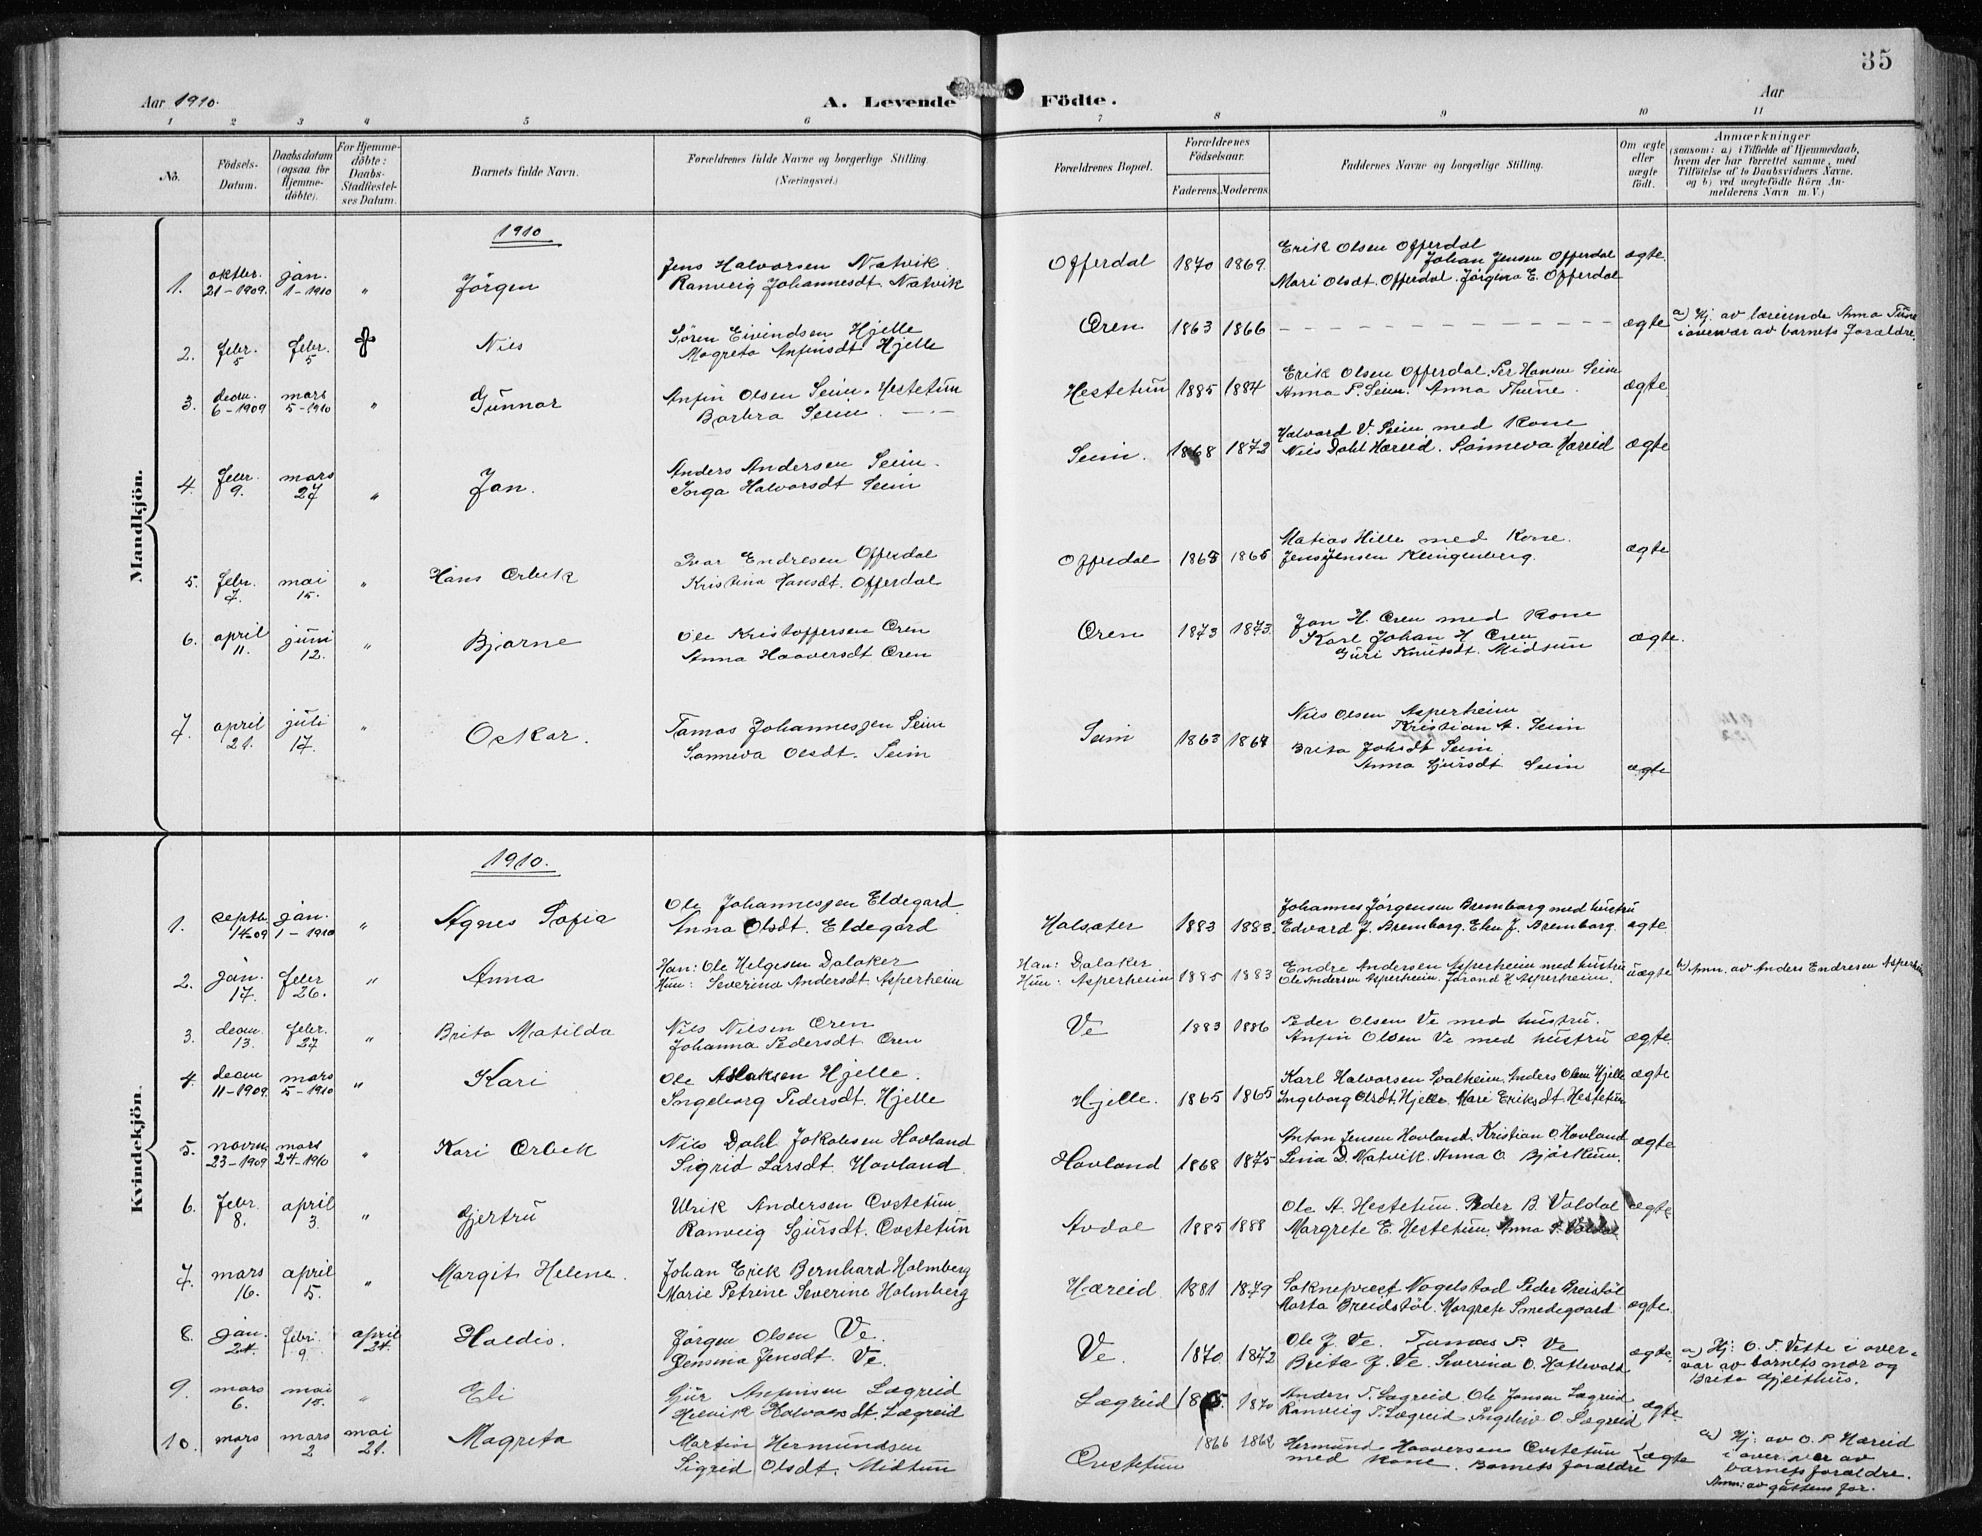 35
Aar 1910.
A. Levende Födte.
Aar
1 2 3 4 5 6 7 8 9 10 11
No.
Födsels-Datum.
Daabsdatum (ogsaa for Hjemme-döbte).
For Hjemme-döbte: Daabs-Stadfæstel-ses Datum.
Barnets fulde Navn.
Forældrenes fulde Navne og borgerlige Stilling.
(Næringsvei.)
Forældrenes Bopæl.
Forældrenes Födselsaar.
Faderens. Moderens.
Faddernes Navne og borgerlige Stilling.
Om ægte eller uægte födt.
Anmærkninger
(saasom: a) i Tilfælde af Hjemmedaab,
hvem der har forrettet samme, med
Tilföielse af to Daabsvidners Navne,
og b) ved uægtefödte Börn An-
melderens Navn m. V.)
Mandkjön.
1910
1. oktbr. 21-1909. jan. 1-1910 " Jörgen
Jens Halvorsen Natvik
Ranveig Johannesdt. Natvik
Offerdal 1870 1869.
Erik Olsen Offerdal
Johan Jensen Offerdal
Mari Olsdt. Offerdal. Jörgina E. Offerdal
ægte
2. febr. 5 febr. 5 Nils
Sören Eivindsen Hjelle
Magreta Anfinsdt Hjelle
Ören 1863 1866
ægte
a) Hj. av lærerinde Anna Tune
i overvær av barnets forældre.
3. decm. 6-1909 mars 5-1910 " Gunnar
Anfin Olsen Seim. Hestetun
Barbra Seim
Hestetun 1885 1884
Erik Olsen Offerdal. Per Hansen Seim
Anna P. Seim. Anna Thune.
ægte
4. febr. 9. mars 27 " Jan.
Anders Andersen Seim.
Inga Halvorsdt Seim
Seim. 1868 1872
Halvard V. Seim med Kone
Nils Dahl Hæreid. Sönneva Hæreid
ægte
5. febr. 7. mai 15. " Hans Orbek
Ivar Endresen Offerdal
Kristina Hansdt. Offerdal
Offerdal 1865 1865
Matias Hille med Kone.
Jens Jensen Klingenberg.
ægte
6. april 11. juni 12. " Bjarne
Ole Kristoffersen Ören
Anna Haaversdt Ören
Ören 1873 1873.
Jan H. Ören med Kone
Karl Johan H Ören
Guri Knutsdt. Midtun
ægte.
7. april 21. juli 17. " Oskar.
Tomas Johannesen Seim
Sönneva Olsdt. Seim
Seim 1863 1867
Nils Olsen Asperheim
Kristian A. Seim
Brita Johsdt Seim
Anna Sjursdt Seim
ægte
Kvindekjön.
1910.
1. septb. 14-09 jan. 1-1910 " Agnes Sofia
Ole Johannesen Eldegard
Anna Olsdt. Eldegard
Halsæter 1883 1883.
Johannes Jörgensen Bremborg med hustru
Edvard J. Bremborg. Elen J. Bremborg.
ægte
2. jan. 17. febr 26. " Anna
Han: Ole Helgesen Dalaker
Hun: Severina Andersdt. Asperheim
Han: Dalaker
Hun: Asperheim 1885 1883
Endre Andersen Asperheim med hustru
Ole Andersen Asperheim. Jörand H Asperheim.
uægte
b) Anm. av Anders Endresen Asperheim
3. decm. 13. febr. 27 " Brita Matilda
Nils Nilsen Ören
Johanna Pedersdt. Ören
Ve 1883 1886
Peder Olsen Ve med hustru.
Anfin Olsen Ve med hustru
ægte
4. decm 11-1909. mars 5-1910 " Kari
Ole Aslaksen Hjelle.
Ingeborg Pedersdt. Hjelle
Hjelle. 1865 1865
Karl Halvorsen Svalheim. Anders Olsen Hjelle
Ingeborg Olsdt. Hjelle. Mari Eriksdt Hestetun
ægte
5. novm. 23-1909 mars 24-1910 " Kari Orbek
Nils Dahl Jakobsen Hovland
Sigrid Larsdt. Hovland.
Hovland 1868 1875
Anton Jensen Hovland. Kristian O. Hovland
Lina D. Natvik. Anna O. Björkum.
ægte
6. febr 8. april 3. " Gjertru
Ulrik Andersen Ovstetun.
Ranveig Sjursdt. Ovstetun
Avdal 1885 1888
Ole A. Hestetun. Peder B. Voldal
Margrete E. Hestetun. Anna
ægte
7. mars 16. april 5. " Margit Helene.
Johan Erik Bernhard Holmberg
Marie Petrine Severine Holmberg
Hæreid 1881 1879
Sokneprest Nagelstad. Peder Breistöl
Marta Breidstöl. Margrete Smedegaard
ægte.
8. jan. 24. febr. 9. april 24. Haldis.
Jörgen Olsen Ve.
Jensina Jensdt. Ve.
Ve. 1870 1872
Ole J. Ve. Tomas P. Ve
Brita J. Ve. Severina O. Hattevold
ægte
a) Hj: O. T. Vette i over-
vær av barnets mor og
Brita Gjeithus.
9. mars 6. mai 15. " Eli
Sjur Anfinsen Lægreid
Helvik Halvorsdt. Lægreid
Lægreid 1870
Anders T. Lægreid. Ole Jonsen Lægreid
Ranveig T. Lægreid Ingeleiv O. Lægreid
ægte
10. mars 1 mars 2 mai 21. Magreta
Martin Hermundsen
Sigrid Olsdt. Midtun
Ovstetun 1866 1862
Hermund Haaversen Ovstetun
med kone. Barnets forældre
ægte
a) Hj: av O. P. Hæreid
i overvær av
barnets forældre.
Anm: av